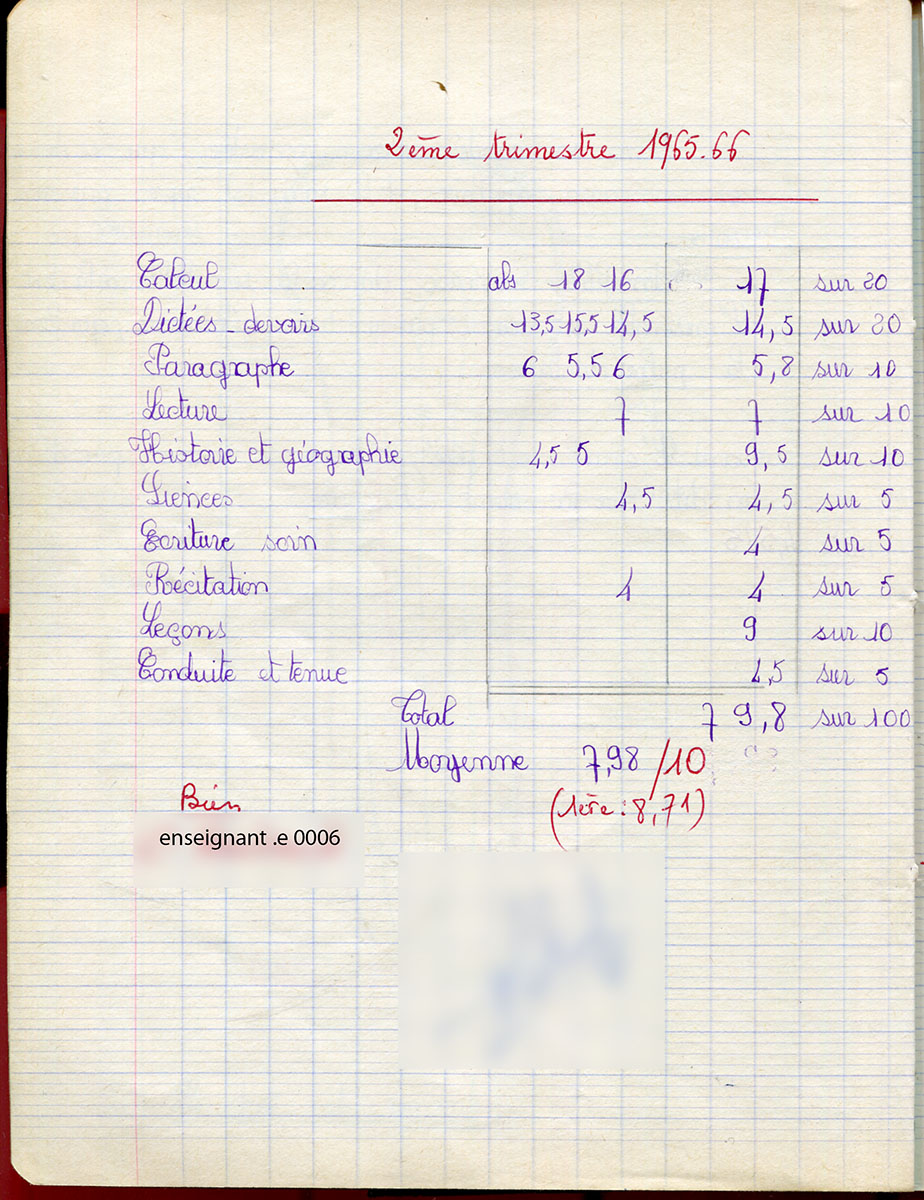 2ème trimestre 1965.66
Calcul abs 18 16 17 sur 20
Dictées - devoirs 13,5 15,5 14,5 14,5 sur 20
Paragraphe 6 5,5 6 5,8 sur 10
Lecture 7 7 sur 10
Histoire et géographie 4,5 5 9,5 sur 10
Sciences 4,5 4,5 sur 5
Ecriture soin 4 sur 5
Récitation 4 4 sur 5
Leçons 9 sur 10
Conduite et tenue 4,5 sur 5
Total 79,8 sur 100
Moyenne 7,98/10
Bien (1ère : 8,71)
enseignant .e 0006